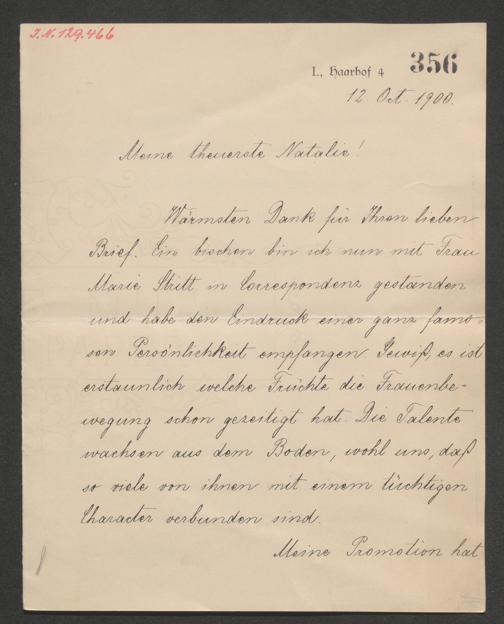 I.N. 129.466
356
I., Haarhof 4
12. Oct. 1900.
Meine theuerste Natalie!
Wärmsten Dank für Ihren lieben
Brief. Ein bischen bin ich nun mit Frau
Marie Stritt in Correspondenz gestanden
und habe den Eindruck einer ganz famo-
sen Persönlichkeit empfangen. Gewiß, es ist
erstaunlich welche Früchte die Frauenbe-
wegung schon gezeitigt hat. Die Talente
wachsen aus dem Boden, wohl uns, daß
so viele von ihnen mit einem tüchtigen
Character verbunden sind.
Meine Promotion hat